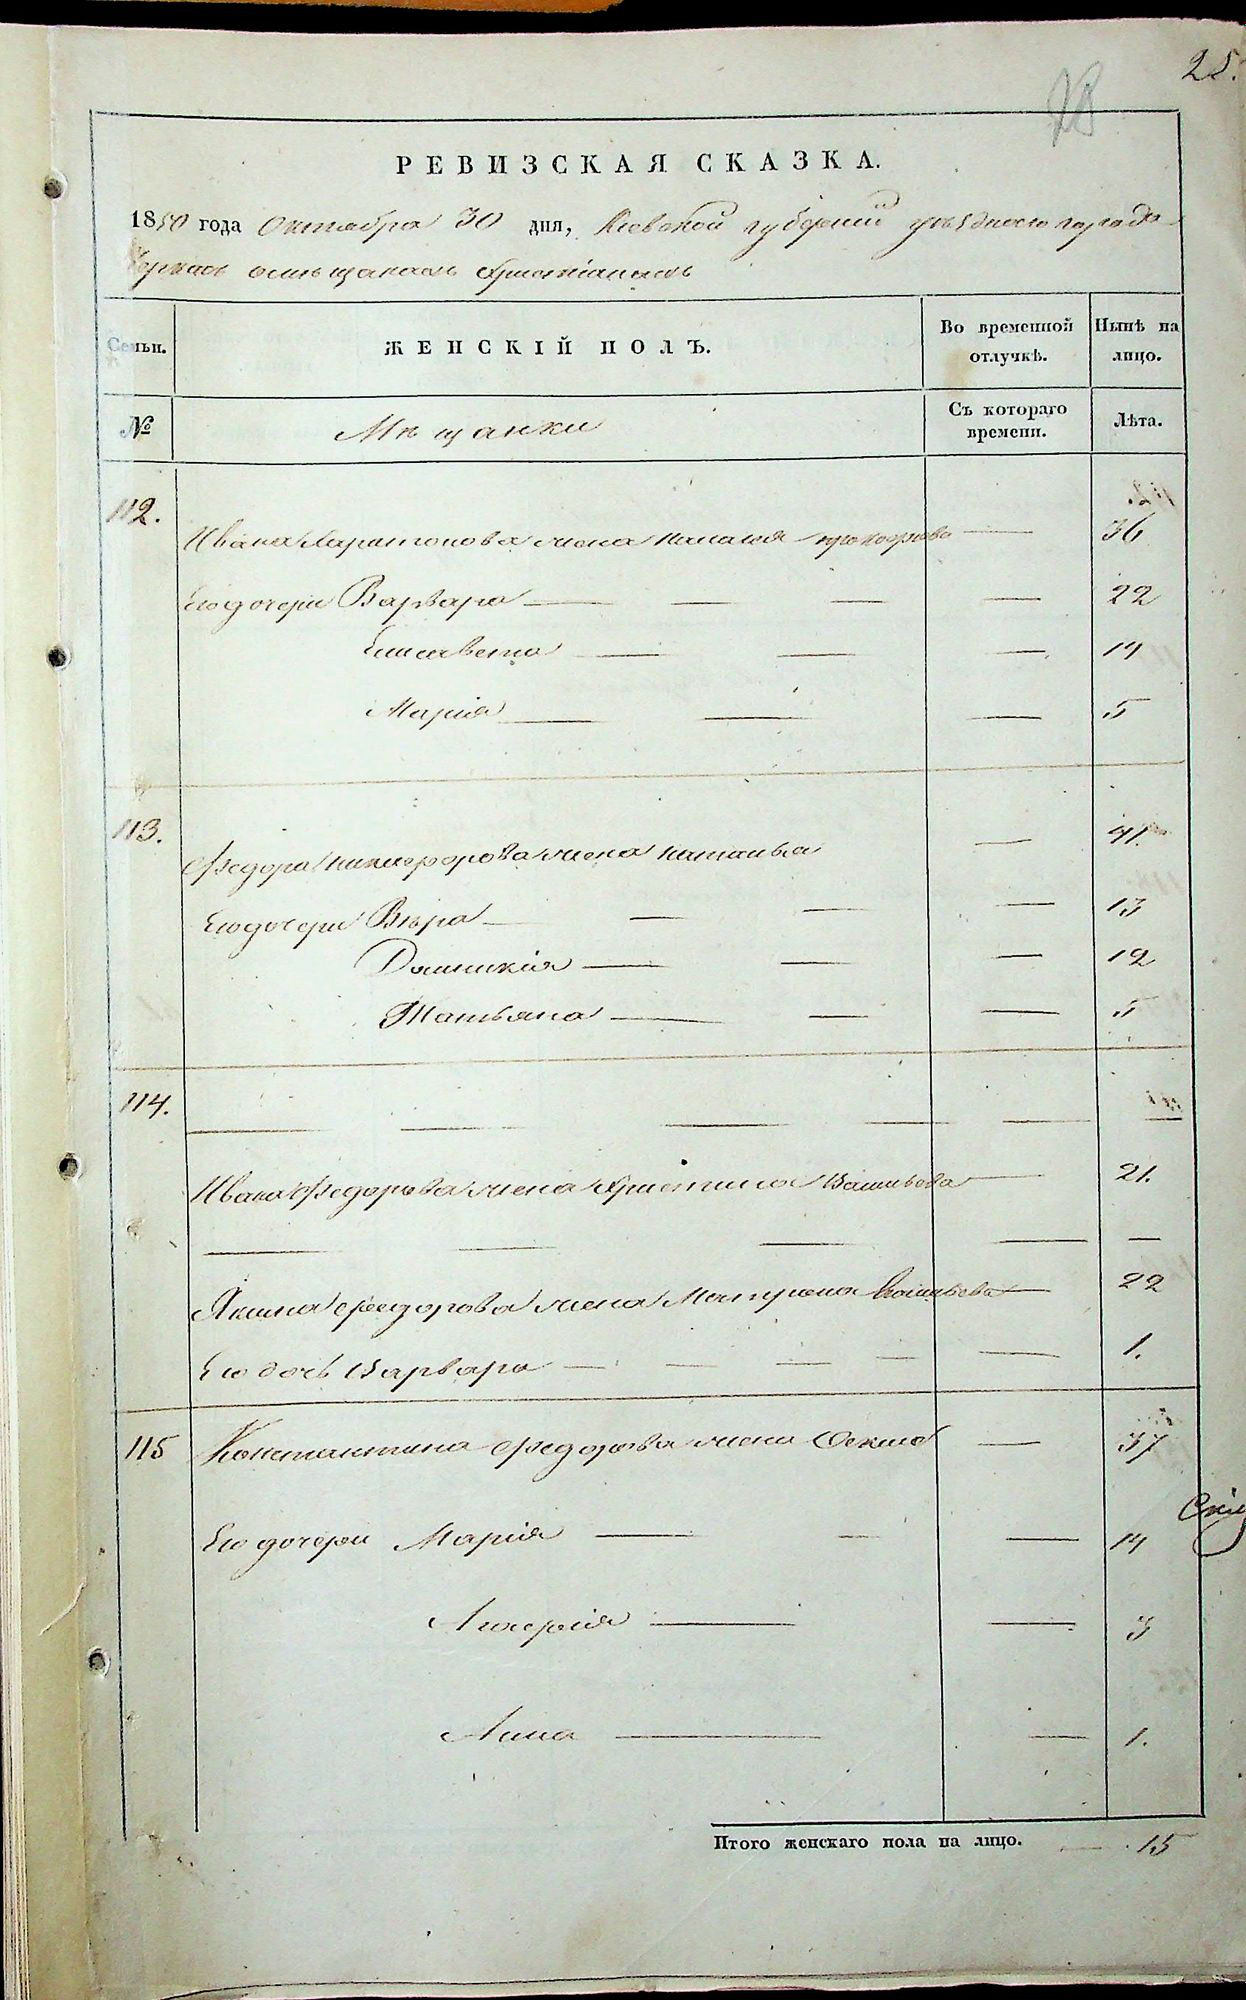 25.
28
РЕВИЗСКАЯ СКАЗКА.
1850 года Октября 30 дня, Кіевской губерніи уѣзднаго города
Черкас о мѣщанахъ Христіанахъ
Семьи. ЖЕНСКІЙ ПОЛЪ. Во временной отлучкѣ. Нынѣ на лицо.
№ Мѣщанки Съ котораго времени. Лѣта.
112.
Ивана Харитонова жена — 36
Его дочери Варвара — — — — 22
Елисавета — — — 14
Марія — — — 5
113.
Федора Никифорова жена Наталья — 41.
Его дочери Вѣра — — — — 13
Домникія — — — 12
Татьяна — — — 5
114.
— — — — — —
Ивана Федорова жена Христина Васильева — 21.
— — — — —
Якима Федорова жена Матрена Васильева — 22
Его дочь Варвара — — — — — 1.
115 Константина Федорова жена — 37
Его дочери Марія — — — 14
Гликерія — — 3
Анна — — 1.
Итого женскаго пола на лицо. — 15